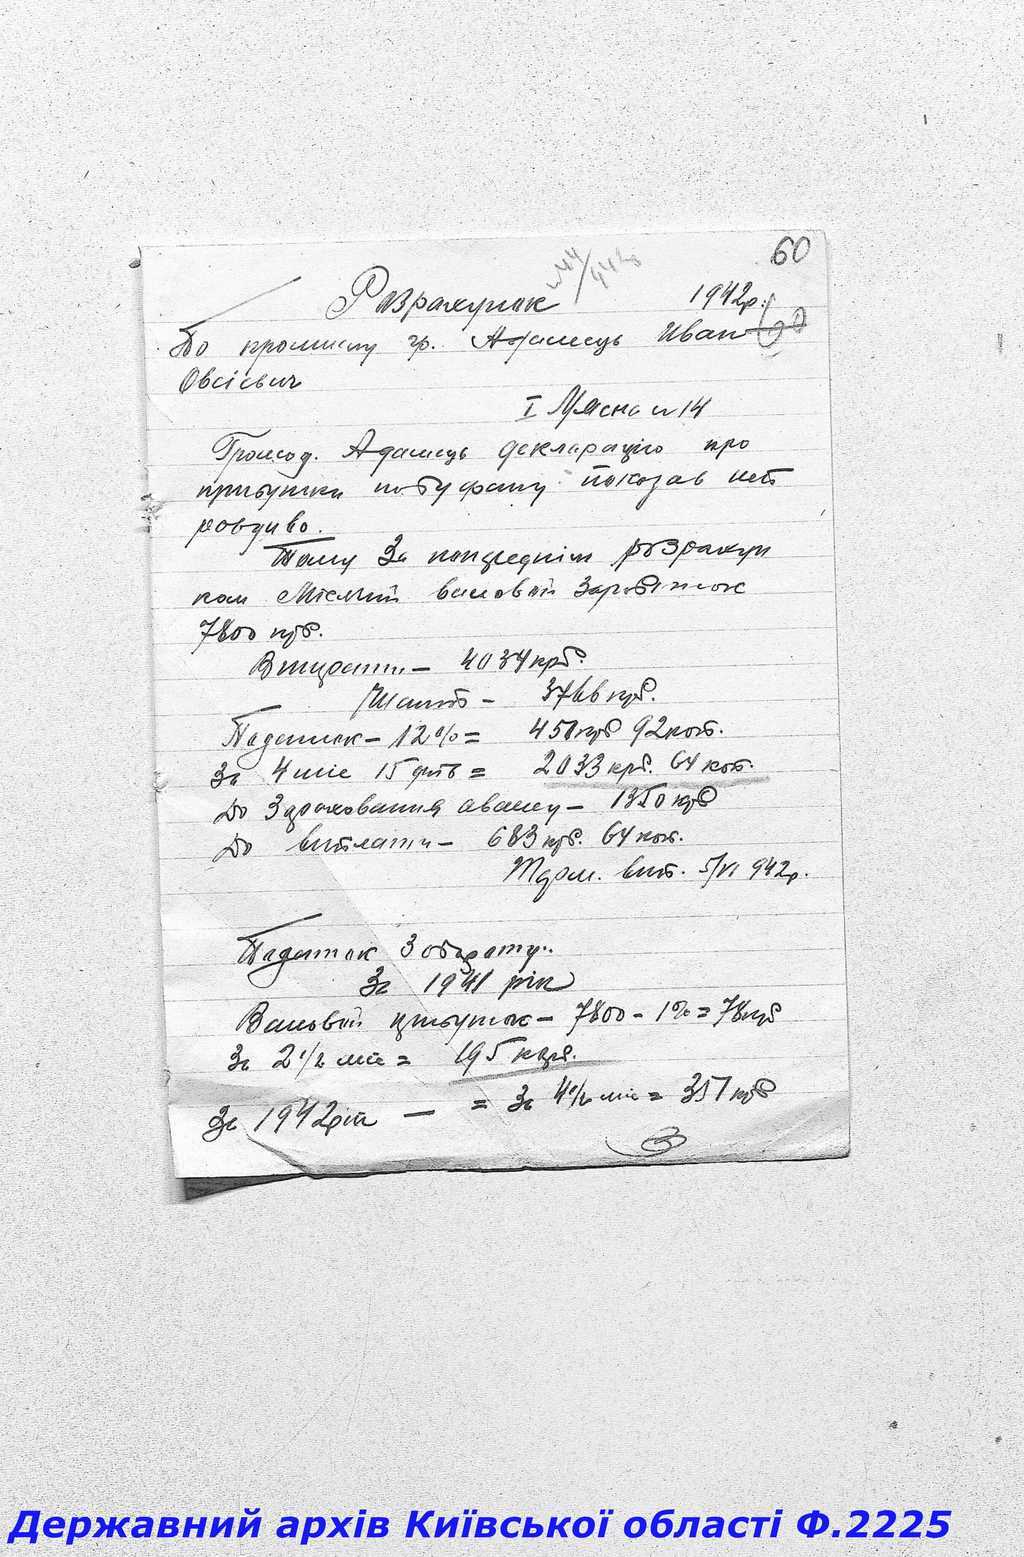 60
Розрахунок 1942р.
По промислу гр. Адамець Иван
Овсієвич
I Мясна № 14
Громод. Адамець декларацію про
прибутки по буфету показав неп
равдиво.
Тому за попереднім розрахун
ком Місячний валовий заробіток
7800 крб.
Витрати – 4034 крб.
Чисит – 3766 крб.
Податок – 12% = 451 крб 92 коп.
За 4 міс 15 днів = 2033 крб. 64 коп.
До здраховання авансу – 1350 крб
До виплати – 683 крб. 64 коп.
вип. 5/VI 942р.
Податок з обороту.
За 1941 рік
Валовий прибуток – 7800 – 1% = 78 крб
За 2 1/2 міс = 195 крб.
За 1942 рік — = За 4 1/2 міс = 351 крб
Державний архів Київської області Ф.2225